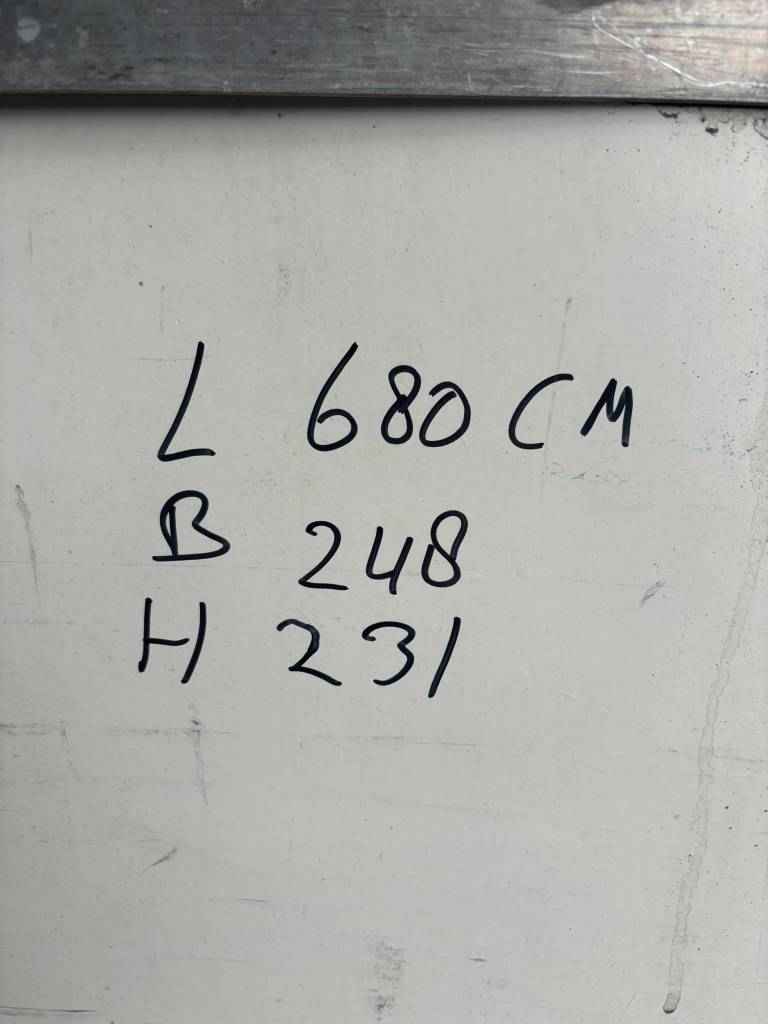 L 680 CM
B 248
H 231